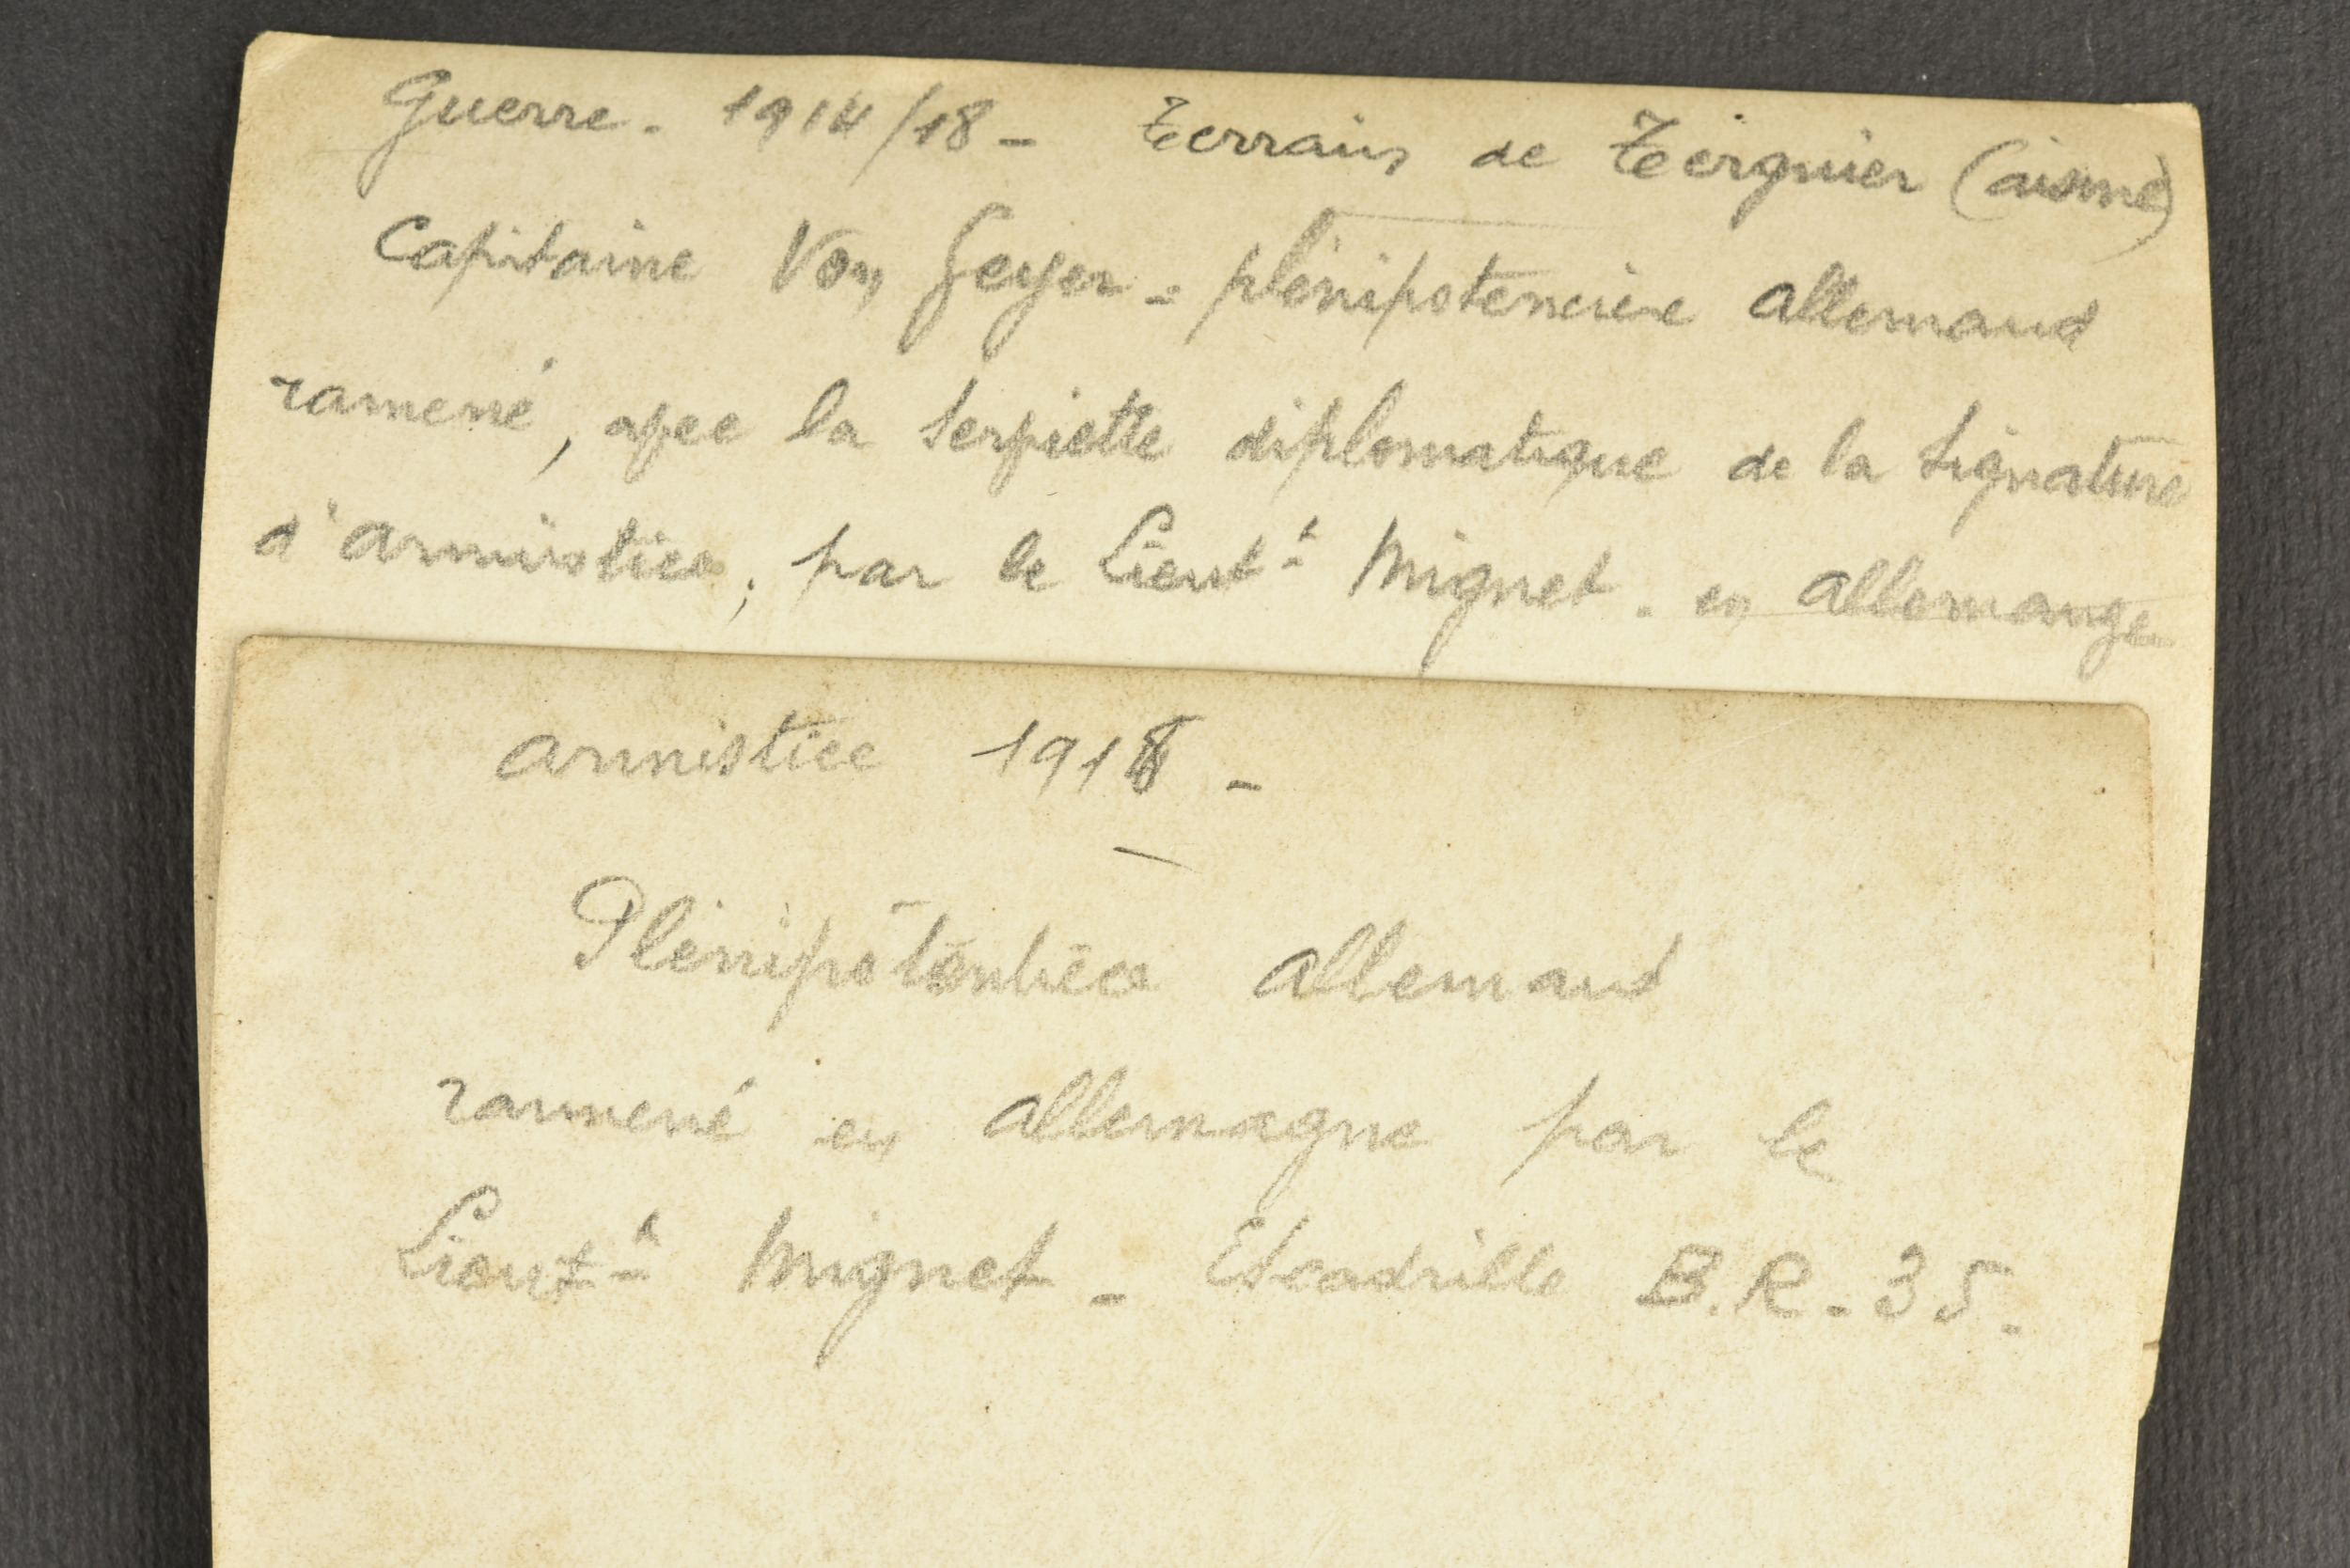 Guerre - 1914/18 - Terrain de Tergnier (aisne)
Capitaine Von Geyer - plénipotencière allemand
ramené, avec la serviette diplomatique de la signature
d'armistice, par le Lieut.t Mignet. en allemange
armistice 1918 -
Plénipotentiée allemand
rammené en allemagne par le
Lieut.t Mignet - Escadrille B.R-35.